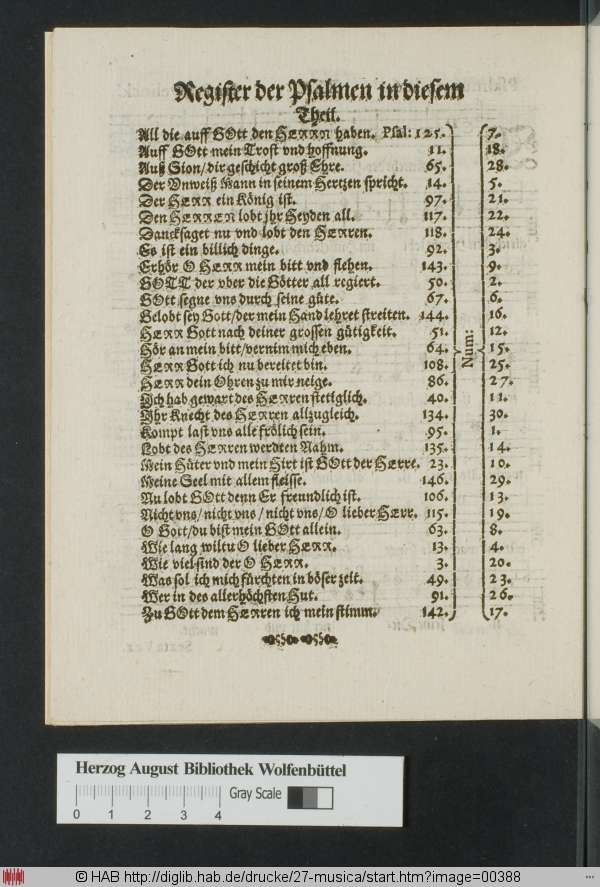 Register der Psalmen in diesem
Theil.
All die auff GOtt den HERRN haben. Psal: 125. 7.
Auff GOtt mein Trost vnd hoffnung. 11. 18.
Auß Sion/dir geschicht groß Ehre. 65. 28.
Der Vnweiß Mann in seinem Hertzen spricht. 14. 5.
Der HERR ein König ist. 97. 21.
Den HERREN lobt jhr Heyden all. 117. 22.
Dancksaget nu vnd lobt den HERren. 118. 24.
Es ist ein billich dinge. 92. 3.
Erhör O HERR mein bitt vnd flehen. 143. 9.
GOTT der vber die Götter all regiert. 50. 2.
GOtt segne vns durch seine güte. 67. 6.
Gelobt sey Gott/der mein Hand lehret streiten. 144. 16.
HERR Gott nach deiner grossen gütigkeit. 51. 12.
Hör an mein bitt/vernim mich eben. 64. 15.
HERR Gott ich nu bereitet bin. 108. 25.
HERR dein Ohren zu mir neige. 86. 27.
Ich hab gewart des HERren stetiglich. 40. 11.
Ihr Knecht des HERren allzugleich. 134. 30.
Kompt last vns alle frölich sein. 95. 1.
Lobt des HERren werdten Nahm. 135. 14.
Mein Hüter vnd mein Hirt ist GOtt der HErre. 23. 10.
Meine Seel mit allem fleisse. 146. 29.
Nu lobt GOtt denn Er freundlich ist. 106. 13.
Nicht vns/nicht vns/nicht vns/O lieber HErr. 115. 19.
O Gott/du bist mein GOtt allein. 63. 8.
Wie lang wiltu O lieber HERR. 13. 4.
Wie viel sind der O HERR. 3. 20.
Was sol ich mich fürchten in böser zeit. 49. 23.
Wer in des allerhöchsten Hut. 91. 26.
Zu GOtt dem HERren ich mein stimm. 142. 17.
Num:
Herzog August Bibliothek Wolfenbüttel
Gray Scale
0 1 2 3 4
© HAB http://diglib.hab.de/drucke/27-musica/start.htm?image=00388